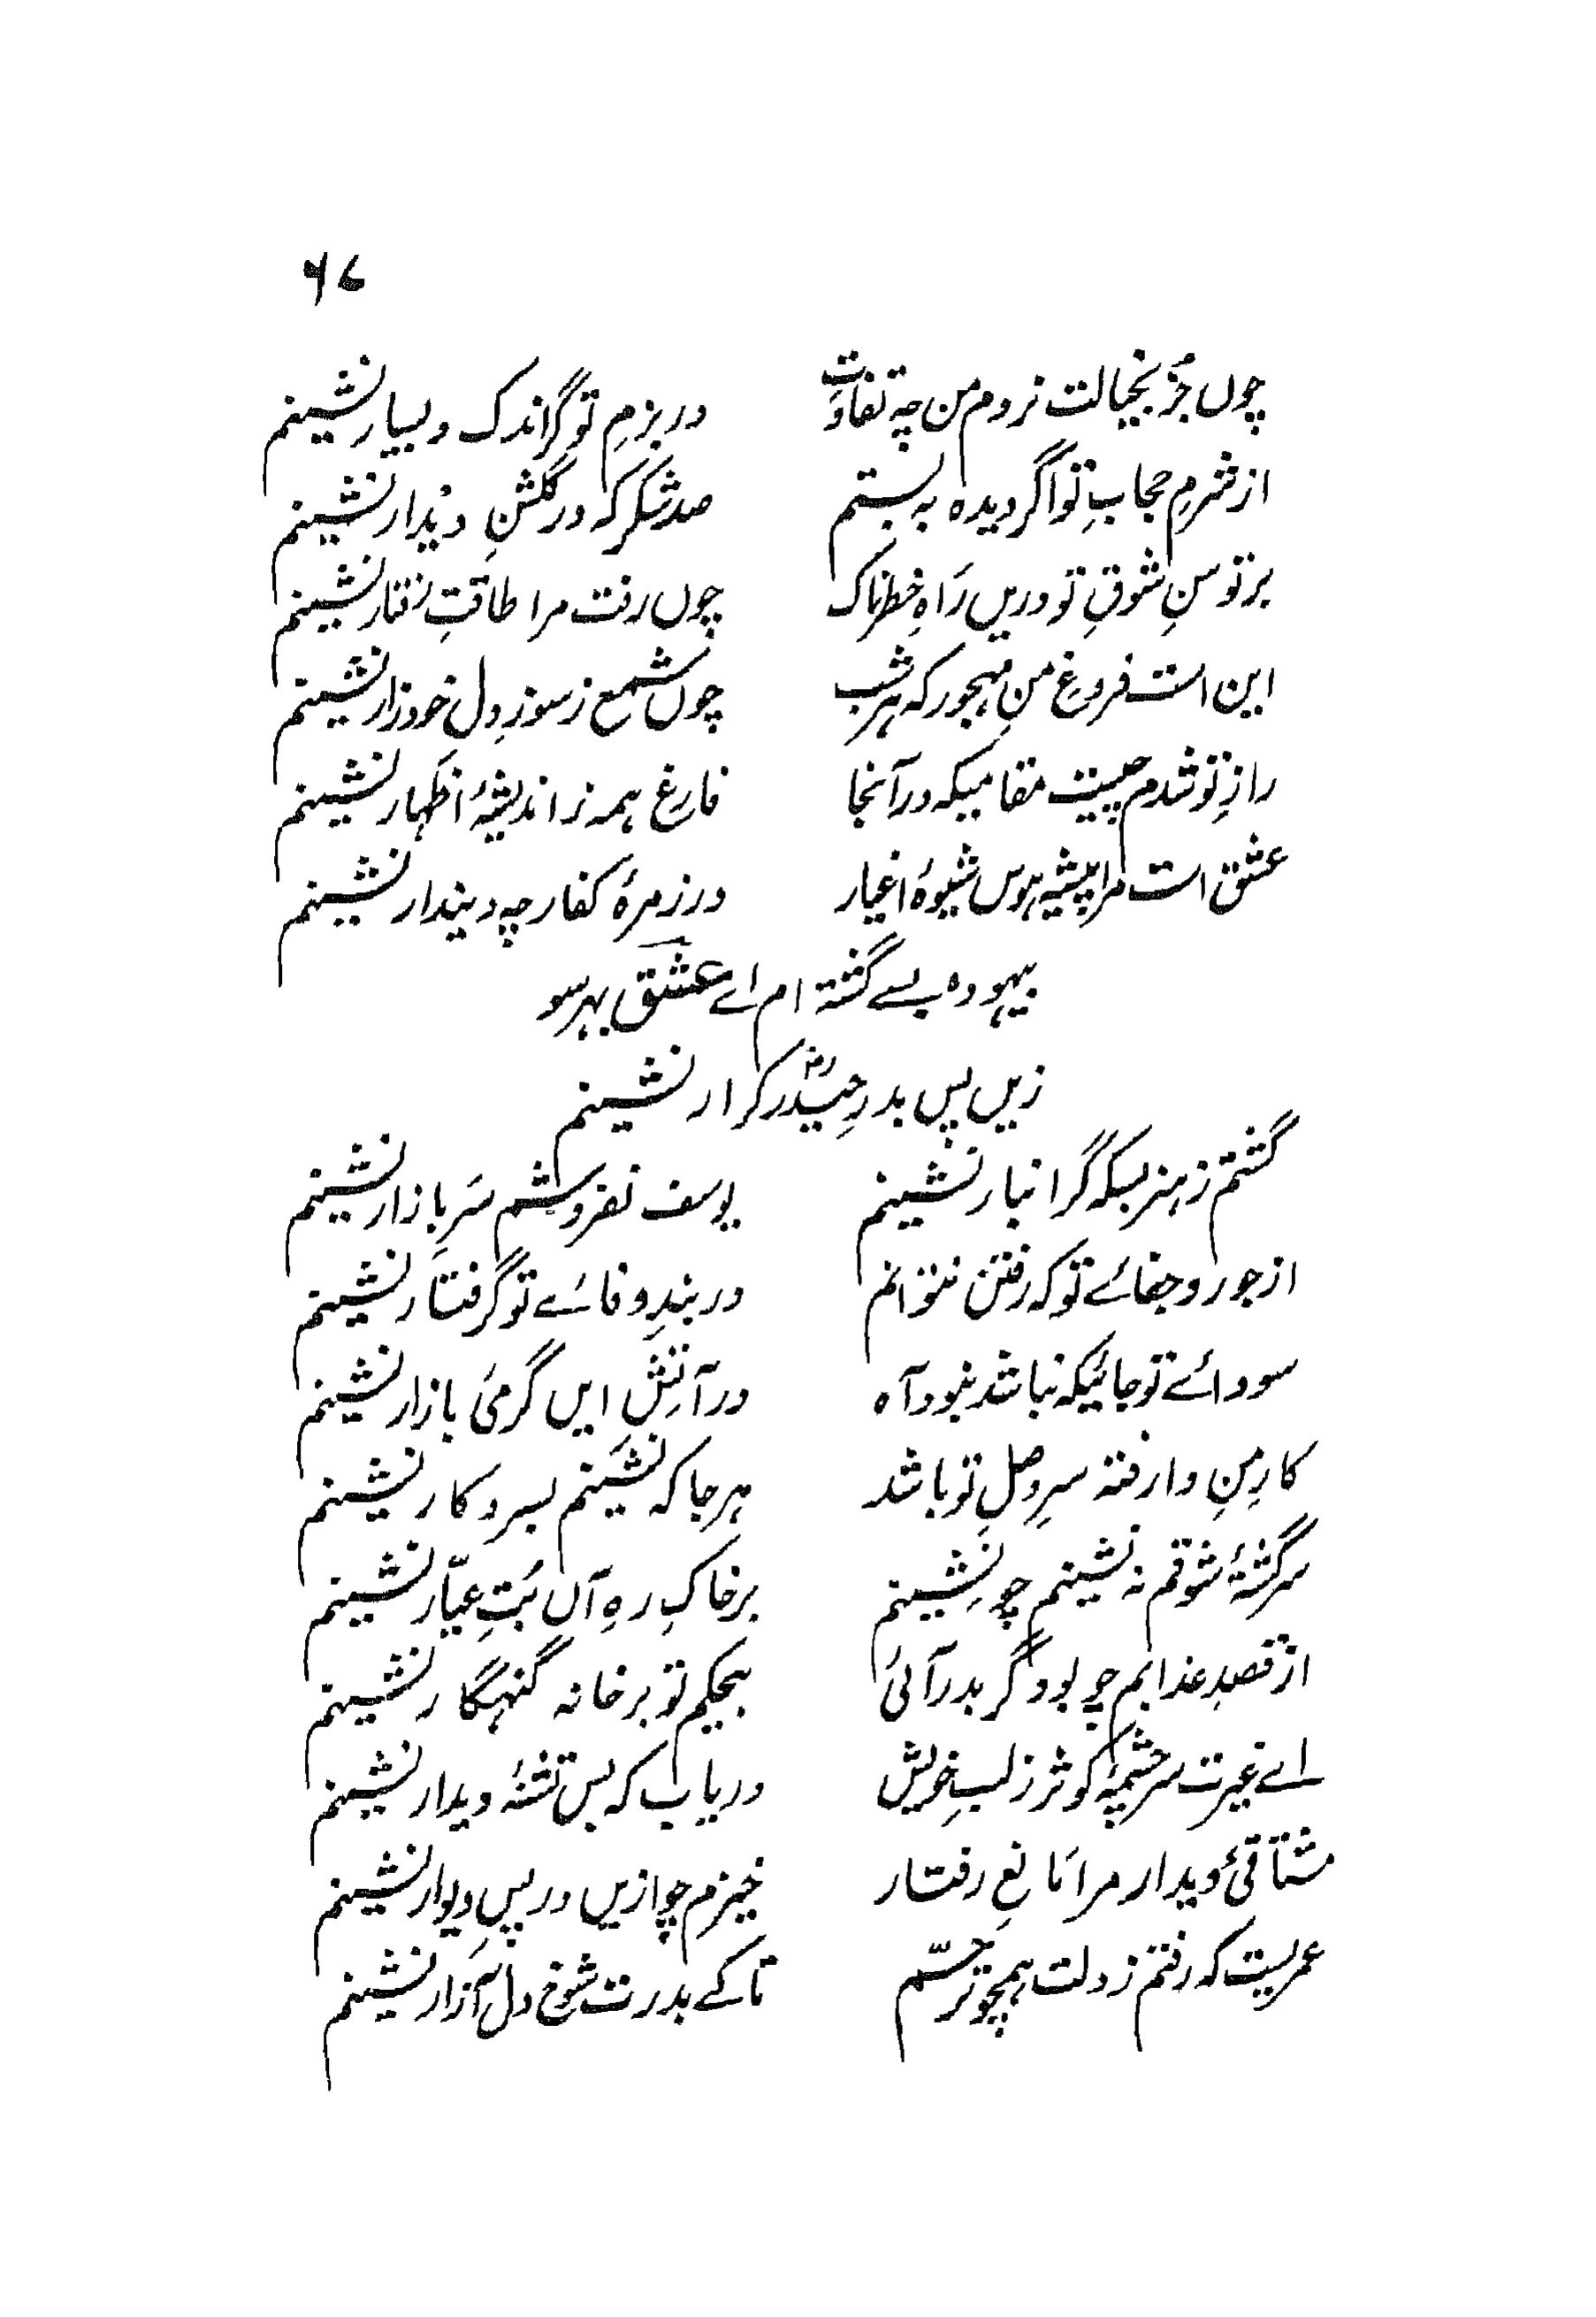 ۶۷
چوں جُز بخیالت نروم من چہ تفاوت در بزمِ تو گر اندک و بسیار نشینم
از شرمِ حجابِ تو اگر دیدہ بہ بستم صد شکر کہ در گلشنِ دیدار نشینم
بر توسنِ شوقِ تو دریں راہِ خطرناک چوں رفت مرا طاقتِ رفتار نشینم
این است فروغِ منِ مہجور کہ ہر شب چوں شمع ز سوزِ دل خود زار نشینم
رازِ تو شدم چیست مقامیکہ در آنجا فارغ ہمہ ز اندیشۂ اظہار نشینم
عشق است مرا پیشہ ہوس شیوۂ اغیار در زمرۂ کفار چہ دیندار نشینم
بیہودہ بسے گشتہ ام اے عشق بہر سو
زیں پس بدرِ حیدرؓ کرار نشینم
گشتم ز ہنر بسکہ گرانبار نشینم یوسف نفروشم سَرِ بازار نشینم
از جور و جفائے تو کہ رفتن نتوانم در بندِ وفائے تو گرفتار نشینم
سودائے تو جائیکہ نباشد نبود آہ در آتشِ ایں گرمیٔ بازار نشینم
کارِ منِ وارفتہ سرِ وصلِ تو باشد ہر جا کہ نشینم بسر و کار نشینم
سرگشتۂ شوقم نہ نشینم چو نشینم بر خاکِ رہِ آں بُتِ عیّار نشینم
از قصدِ عذابم چو بود گر بدر آئی بحکم تو بر خانہ گنہگار نشینم
اے غیرت سرچشمۂ کوثر ز لبِ خویش دریاب کہ بس تشنۂ دیدار نشینم
مشتاقیٔ دیدار مرا مانعِ رفتار خیزم چو ازیں در پسِ دیوار نشینم
عمریست کہ رفتم ز دلت ہمچو ترحّم تا کے بدرت شوخ دل آزار نشینم